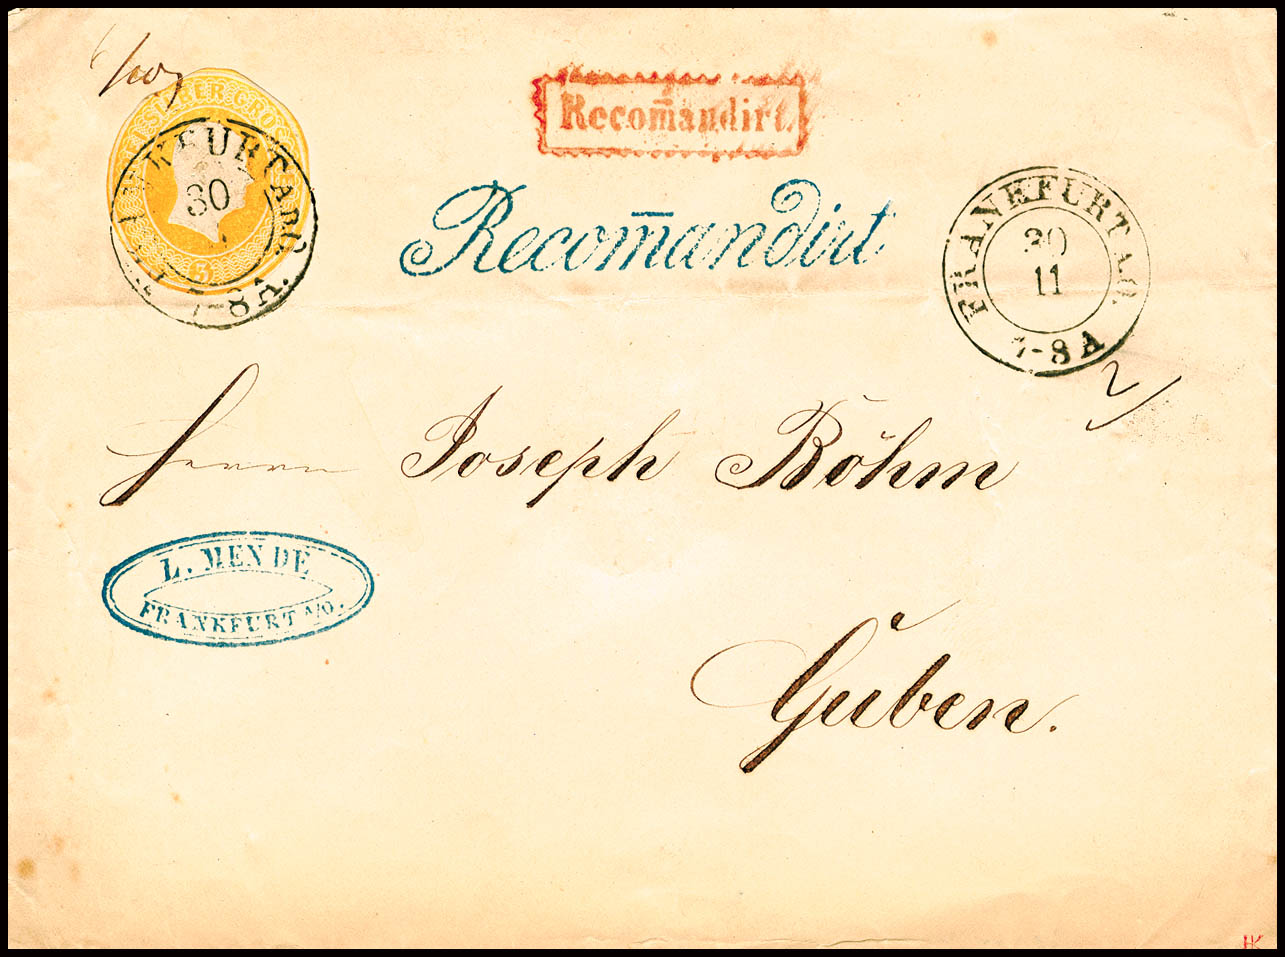 SILBER GROSCH
FRANKFURT A.O.
30
7-8 A.
3
Recom̄andirt.
Recom̄andirt
FRANKFURT A.O.
30
11
7-8 A
Herrn Joseph Böhm
L. MENDE
FRANKFURT A/O.
Guben.
HK